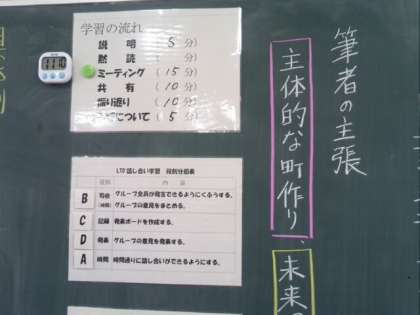 筆者の主張
主体的な町作り、
未来
学習の流れ
説明 5分)
黙読 分)
ミーティング (15分)
共有 (10分)
振り返り (10分)
について (5分)
LTD話し合い学習 役割分担表
役割 内容
B 司会 グループ全員が発言できるようにくふうする。
(時間) グループの意見をまとめる。
C 記録 発表ボードを作成する。
D 発表 グループの意見を発表する。
A 時間 時間通りに話し合いができるようにする。